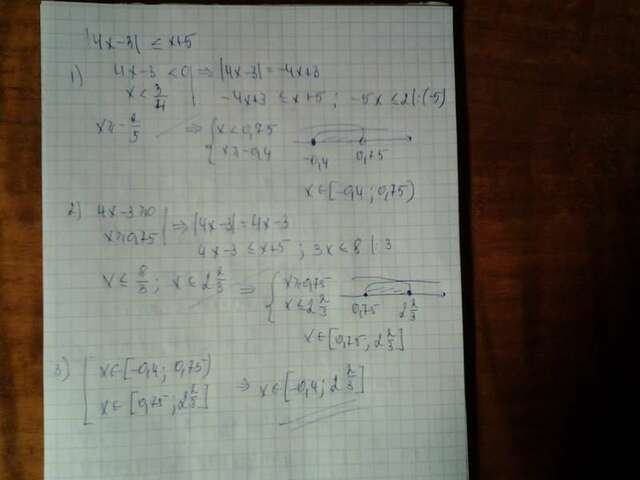 |4x-3| ≤ x+5
1) 4x-3 < 0 ⇒ |4x-3| = -4x+3
x < 3/4 | -4x+3 ≤ x+5 ; -5x ≤ 2 |:(-5)
x ≥ -2/5 ⇒ { x < 0,75
{ x ≥ -0,4
-0,4 0,75
x ∈ [-0,4 ; 0,75)
2) 4x-3 ≥ 0
x ≥ 0,75 | ⇒ |4x-3| = 4x-3
4x-3 ≤ x+5 ; 3x ≤ 8 |:3
x ≤ 8/3 ; x ≤ 2 2/3 ⇒ { x ≥ 0,75
{ x ≤ 2 2/3
0,75 2 2/3
x ∈ [0,75 ; 2 2/3]
3) [ x ∈ [-0,4 ; 0,75)
[ x ∈ [0,75 ; 2 2/3] ⇒ x ∈ [-0,4 ; 2 2/3]